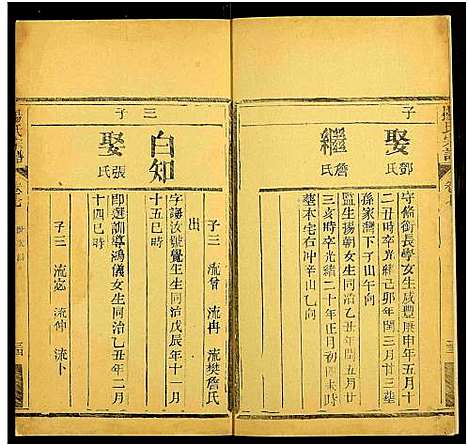 子
娶 鄧氏
守備銜長學女生咸豐庚申年五月十
二丑時歿光緒己卯年閏三月廿三墓
孫家灣下子山午向
繼 詹氏
監生揚朝女生同治乙丑年閏五月廿
三亥時歿光緒二十年正月初四未時
墓本宅右冲辛山乙向
子三 流曾 流冉 流樊詹氏
出
三子
自知
字謨汝號覺生生同治戊辰年十一月
十五巳時
娶 張氏
即選訓導鴻儀女生同治乙丑年二月
十四巳時
子三 流宓 流仲 流卜
卷七